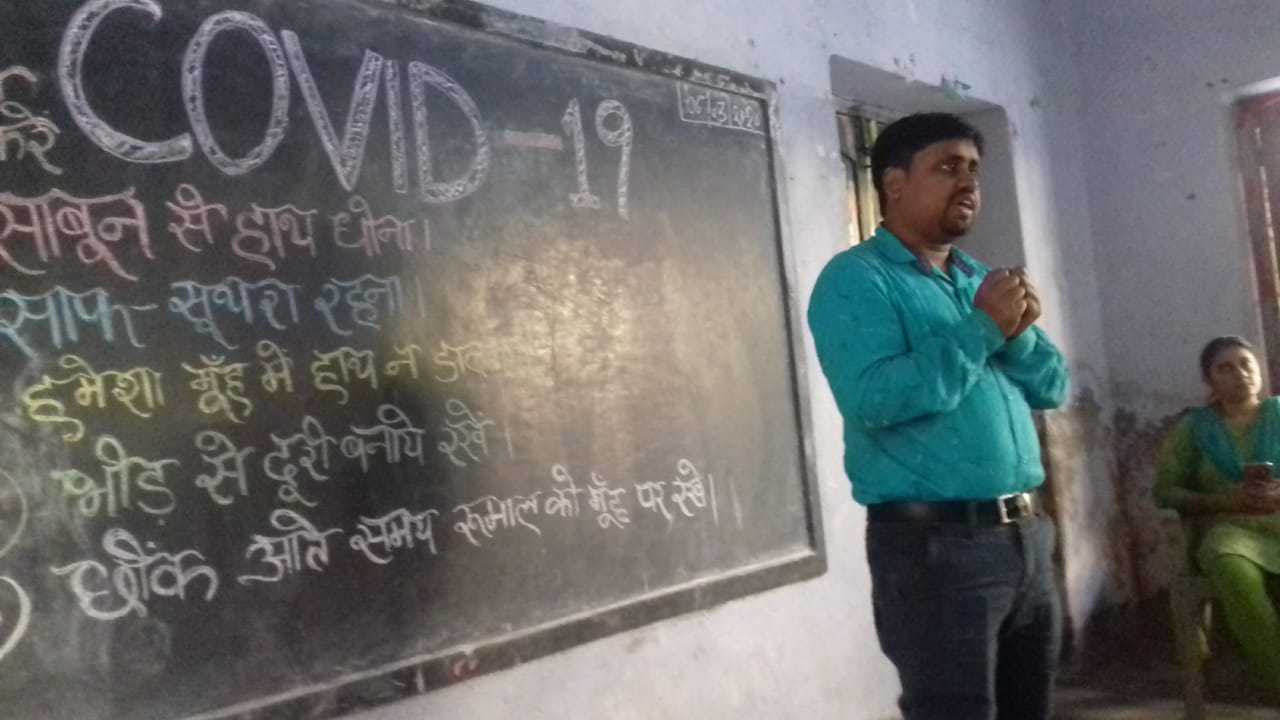 COVID-19
करें
साबुन से हाथ धोना।
साफ सूथरा रहना।
हमेशा मूँह मे हाथ न
भीड़ से दूरी बनाये रखें।
छींक आते समय रूमाल को मूँह पर रखे।